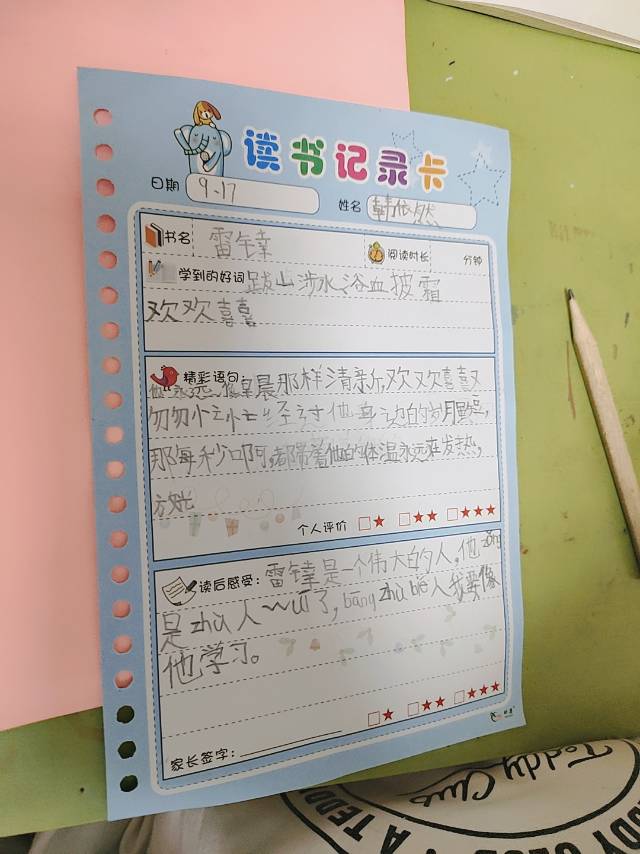 读书记录卡
日期 9.17
姓名 韩依然
书名 雷锋
阅读时长 分钟
学到的好词 跋山涉水、浴血披霜
欢欢喜喜
精彩语句
他永远像早晨那样清新,欢欢喜喜又
匆匆忙忙经过他身边的岁月
那每秒啊,都带着他的体温永远在发热,
个人评价 ★ ★★ ★★★
读后感受: 雷锋是一个伟大的人,他zǒng
是zhù人了, bāng zhù bié人我要像
他学习。
★ ★★ ★★★
家长签字:
Teddy Club
A TEDD